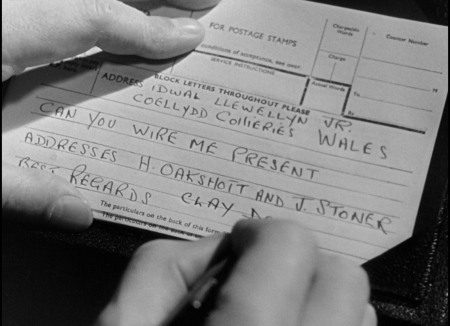 FOR POSTAGE STAMPS
Chargeable Words
Counter Number
conditions of acceptance, see over.
Charge
SERVICE INSTRUCTIONS
Actual Words
M
To
BLOCK LETTERS THROUGHOUT PLEASE
ADDRESS IDWAL LLEWELLYN JR.
COELLYDD COLLIERIES WALES
CAN YOU WIRE ME PRESENT
ADDRESSES H. OAKSHOTT AND J. STONER
BEST REGARDS CLAY
The particulars on the back of this form